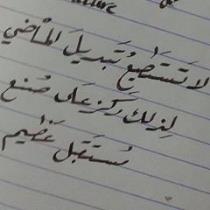 لا تَستَطيعُ تَبديلَ المَاضي
لِذلِك رَكِز عَلى صُنع
مُستَقبل عَظيم